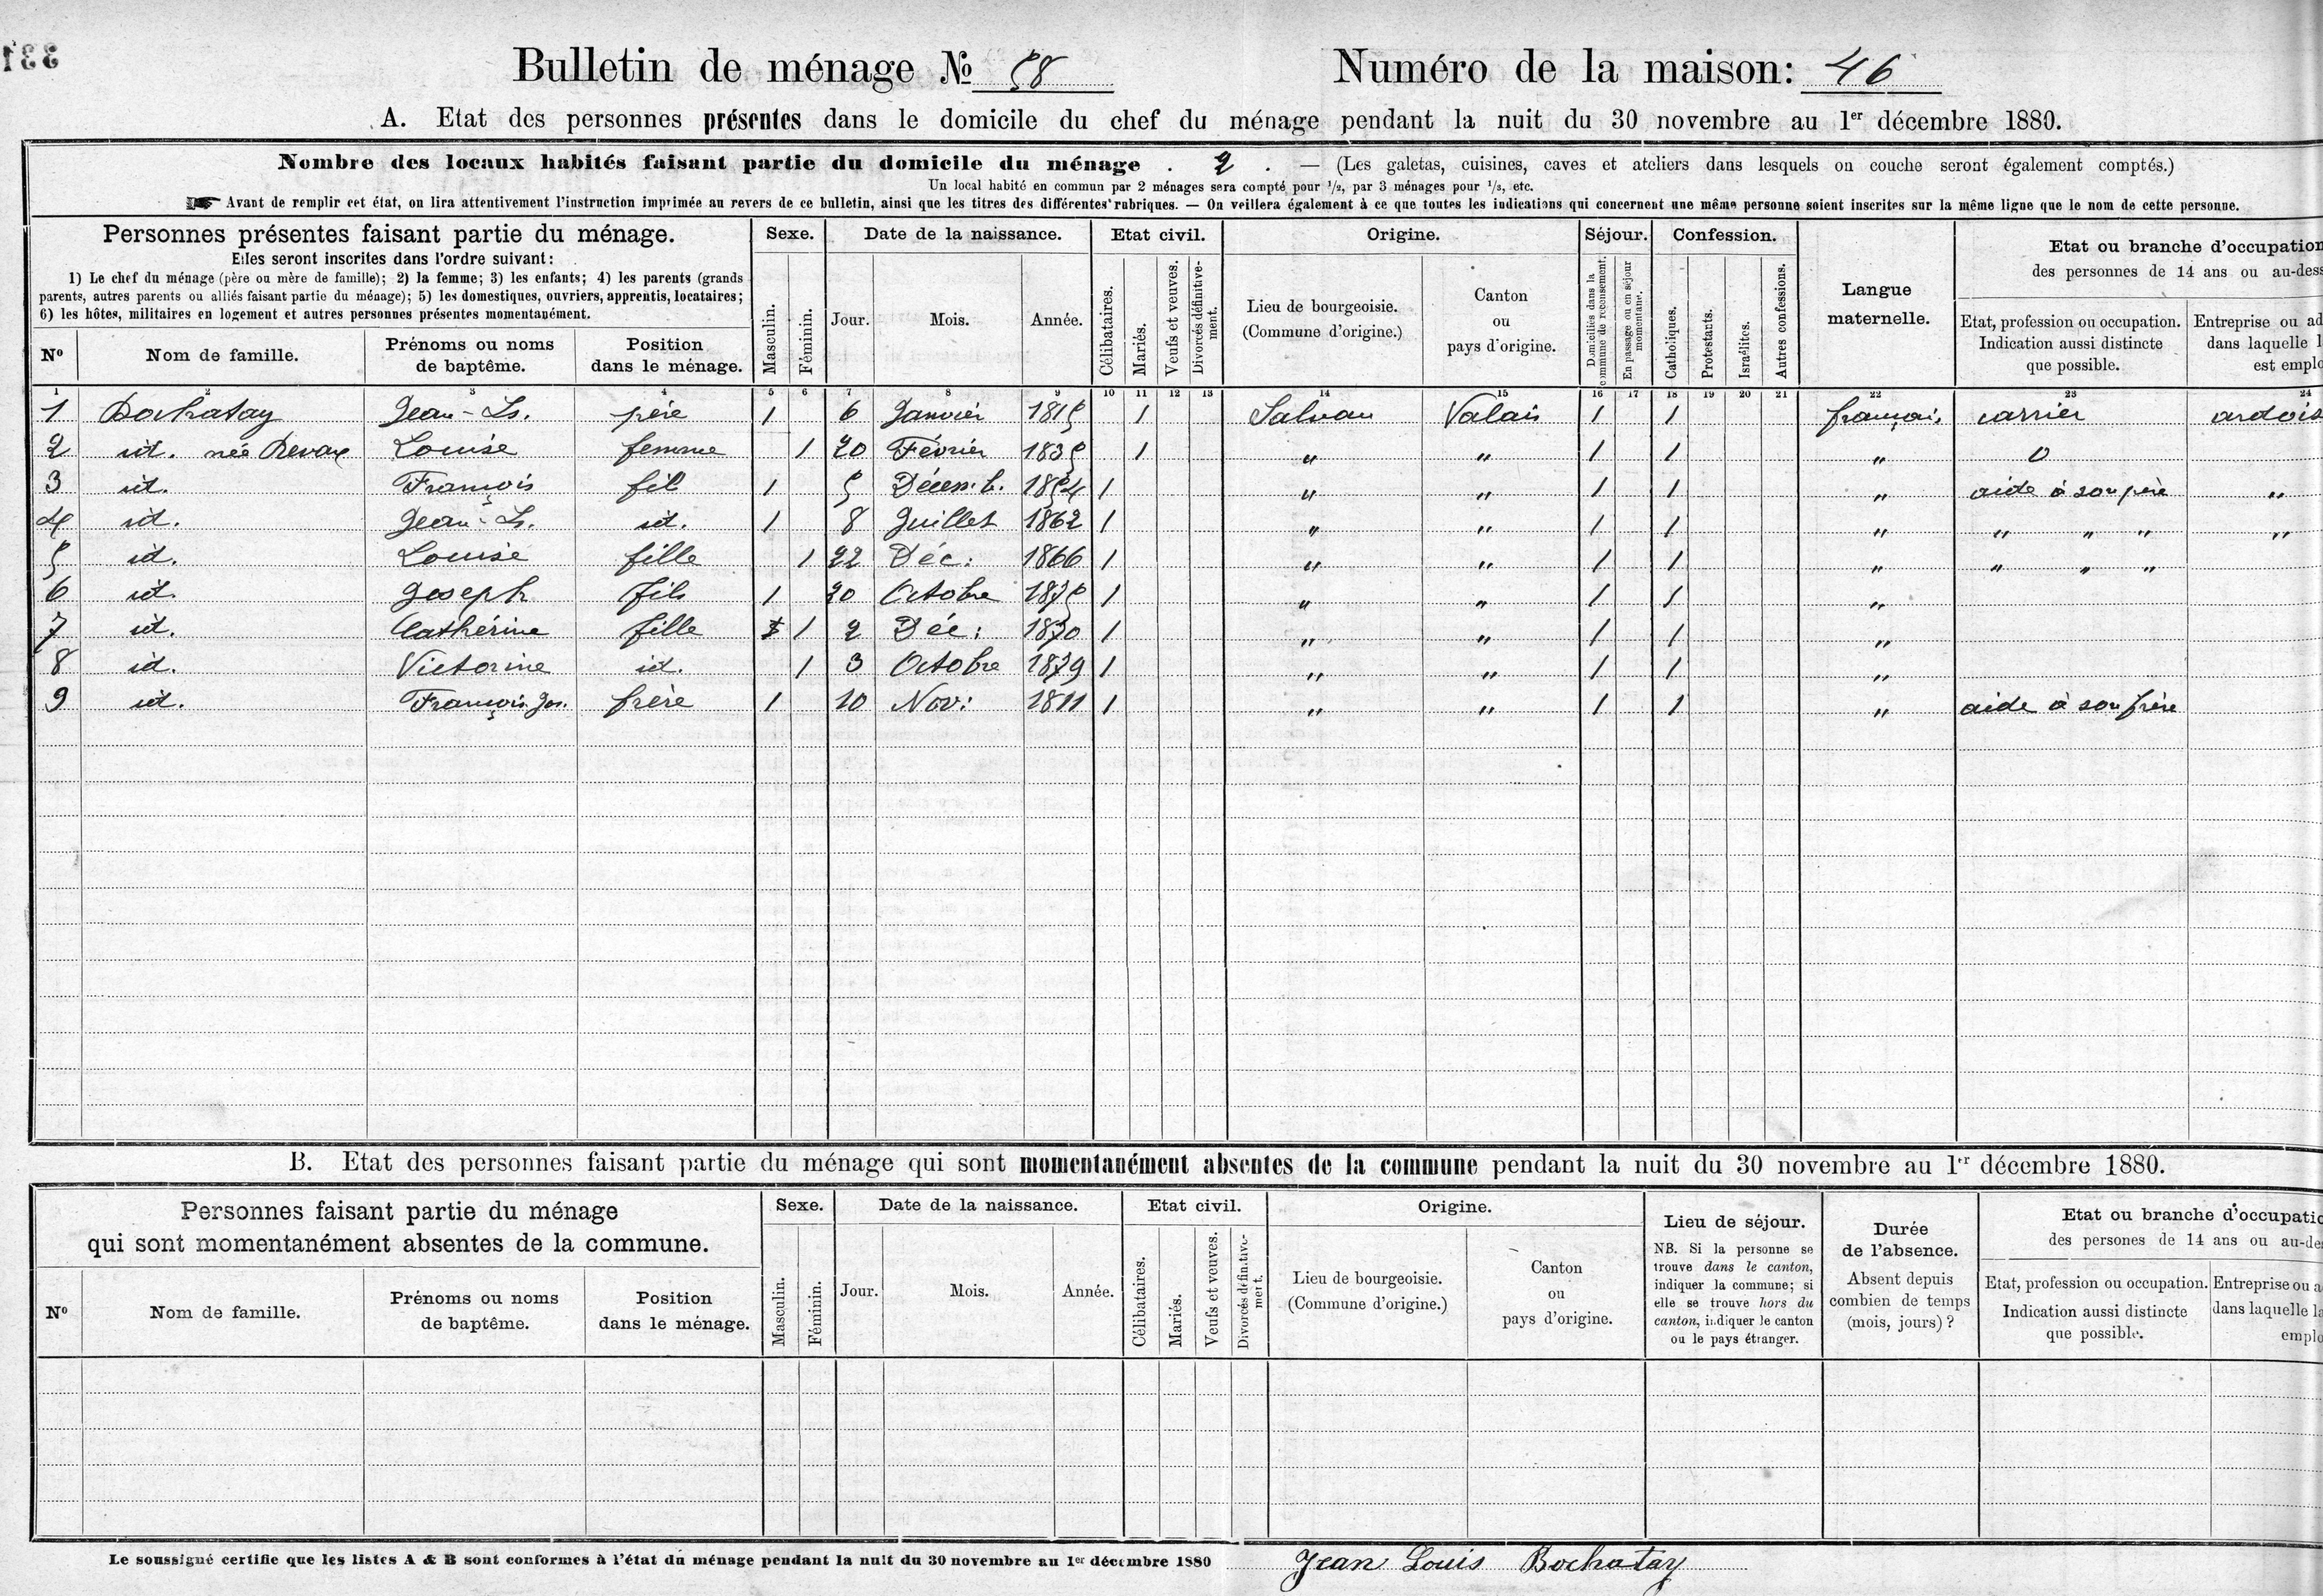 331
Bulletin de ménage № 58 Numéro de la maison: 46
A. Etat des personnes présentes dans le domicile du chef du ménage pendant la nuit du 30 novembre au 1er décembre 1880.
Nombre des locaux habités faisant partie du domicile du ménage . 2 . — (Les galetas, cuisines, caves et ateliers dans lesquels on couche seront également comptés.)
Un local habité en commun par 2 ménages sera compté pour 1/2, par 3 ménages pour 1/3, etc.
Avant de remplir cet état, on lira attentivement l'instruction imprimée au revers de ce bulletin, ainsi que les titres des différentes rubriques. — On veillera également à ce que toutes les indications qui concernent une même personne soient inscrites sur la même ligne que le nom de cette personne.
Personnes présentes faisant partie du ménage.
Elles seront inscrites dans l'ordre suivant:
1) Le chef du ménage (père ou mère de famille); 2) la femme; 3) les enfants; 4) les parents (grands
parents, autres parents ou alliés faisant partie du ménage); 5) les domestiques, ouvriers, apprentis, locataires;
6) les hôtes, militaires en logement et autres personnes présentes momentanément.
No Nom de famille. Prénoms ou noms de baptême. Position dans le ménage.
Sexe. Masculin. Féminin.
Date de la naissance. Jour. Mois. Année.
Etat civil. Célibataires. Mariés. Veufs et veuves. Divorcés définitivement.
Origine. Lieu de bourgeoisie. (Commune d'origine.) Canton ou pays d'origine.
Séjour. Domiciliés dans la commune de recensement. En passage ou en séjour momentané.
Confession. Catholiques. Protestants. Israélites. Autres confessions.
Langue maternelle.
Etat ou branche d'occupation
des personnes de 14 ans ou au-dess
Etat, profession ou occupation. Indication aussi distincte que possible.
Entreprise ou ad
dans laquelle l
est emplo
1 2 3 4 5 6 7 8 9 10 11 12 13 14 15 16 17 18 19 20 21 22 23 24
1 Bochatay Jean-Ls. père 1 6 Janvier 1815 1 Salvan Valais 1 1 français carrier ardois
2 id. née Revaz Louise femme 1 20 Février 1835 1 " " 1 1 " 0
3 id. François fils 1 5 Décemb. 1854 1 " " 1 1 " aide à son père "
4 id. Jean-Ls. id. 1 8 Juillet 1862 1 " " 1 1 " " " " "
5 id. Louise fille 1 22 Déc: 1866 1 " " 1 1 " " " "
6 id. Joseph fils 1 20 Octobre 1875 1 " " 1 1 "
7 id. Cathérine fille 1 2 Déc: 1870 1 " " 1 1 "
8 id. Victorine id. 1 3 Octobre 1879 1 " " 1 1 "
9 id. François Jos. frère 1 10 Nov: 1811 1 " " 1 1 " aide à son frère
B. Etat des personnes faisant partie du ménage qui sont momentanément absentes de la commune pendant la nuit du 30 novembre au 1er décembre 1880.
Personnes faisant partie du ménage
qui sont momentanément absentes de la commune.
No Nom de famille. Prénoms ou noms de baptême. Position dans le ménage.
Sexe. Masculin. Féminin.
Date de la naissance. Jour. Mois. Année.
Etat civil. Célibataires. Mariés. Veufs et veuves. Divorcés définitivement.
Origine. Lieu de bourgeoisie. (Commune d'origine.) Canton ou pays d'origine.
Lieu de séjour.
NB. Si la personne se
trouve dans le canton,
indiquer la commune; si
elle se trouve hors du
canton, indiquer le canton
ou le pays étranger.
Durée
de l'absence.
Absent depuis
combien de temps
(mois, jours) ?
Etat ou branche d'occupatio
des persones de 14 ans ou au-de
Etat, profession ou occupation. Indication aussi distincte que possible.
Entreprise ou a
dans laquelle la
emplo
Le soussigné certifie que les listes A & B sont conformes à l'état du ménage pendant la nuit du 30 novembre au 1er décembre 1880 Jean Louis Bochatay